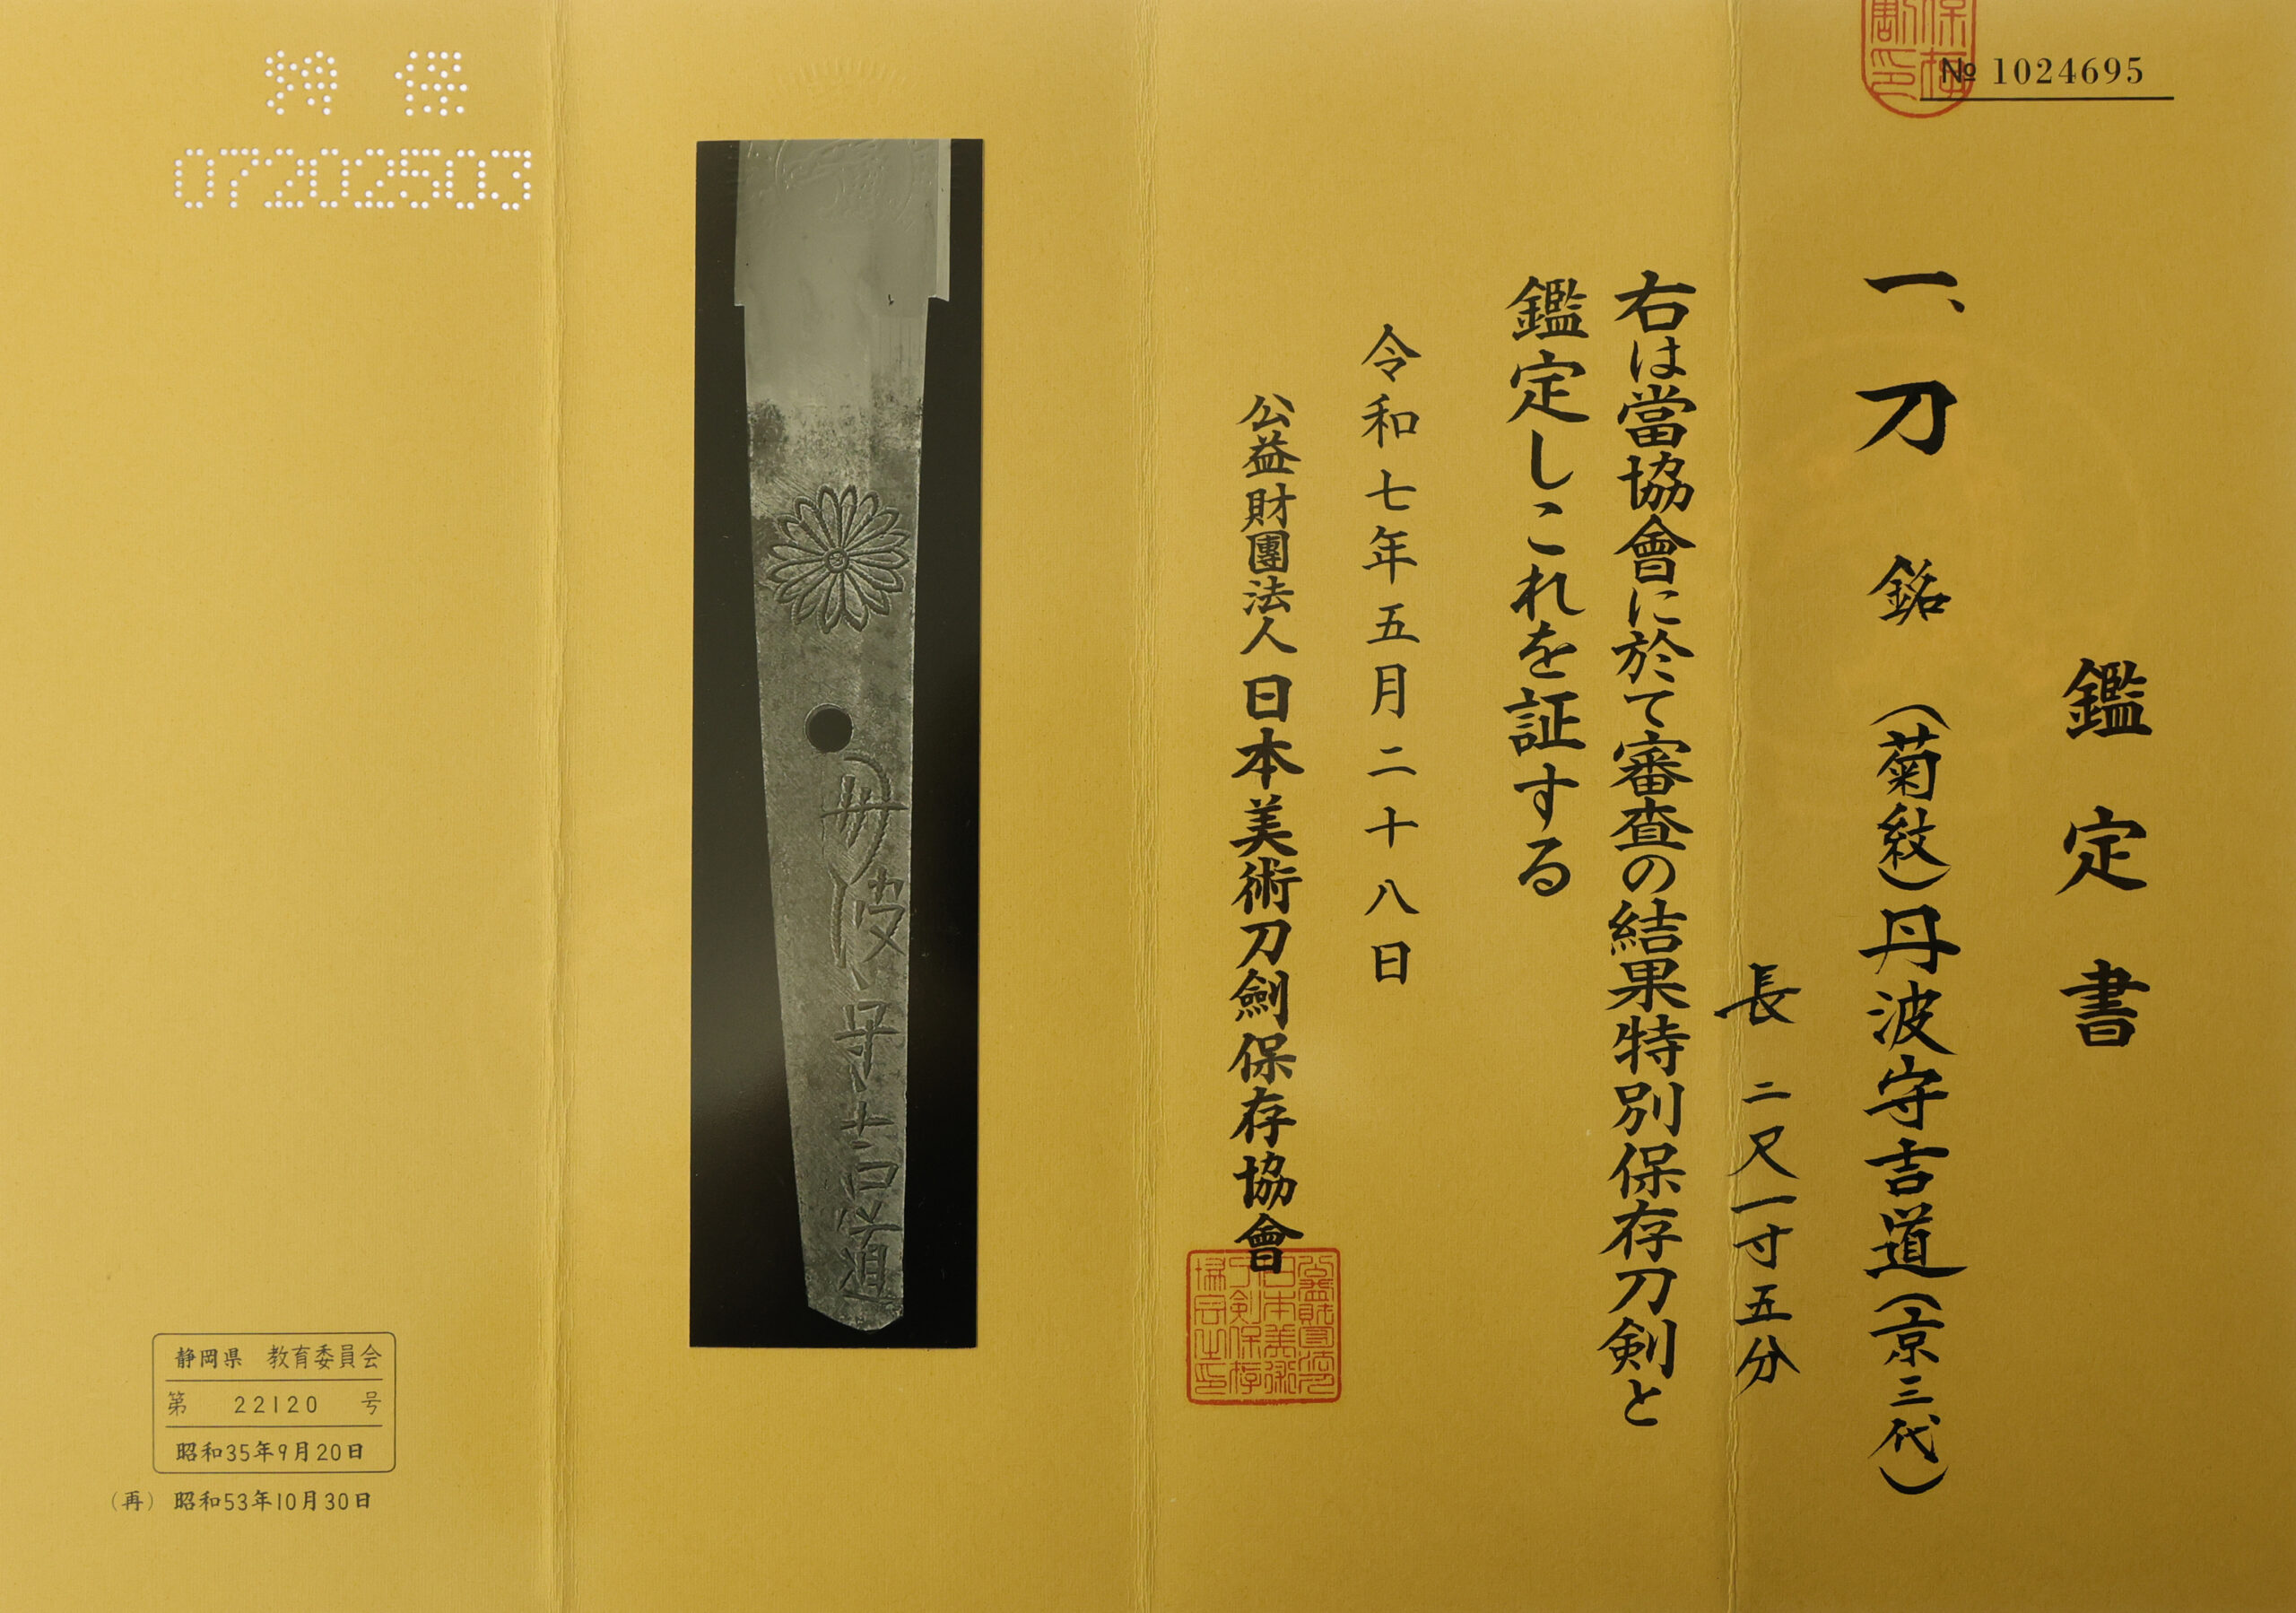 № 1024695
鑑定書
一、刀 銘 (菊紋)丹波守吉道(京三代)
長 二尺一寸五分
右は當協會に於て審査の結果特別保存刀剣と
鑑定しこれを証する
令和七年五月二十八日
公益財團法人 日本美術刀劍保存協會
丹波守吉道
特保
07202503
静岡県 教育委員会
第 22120 号
昭和35年9月20日
(再) 昭和53年10月30日